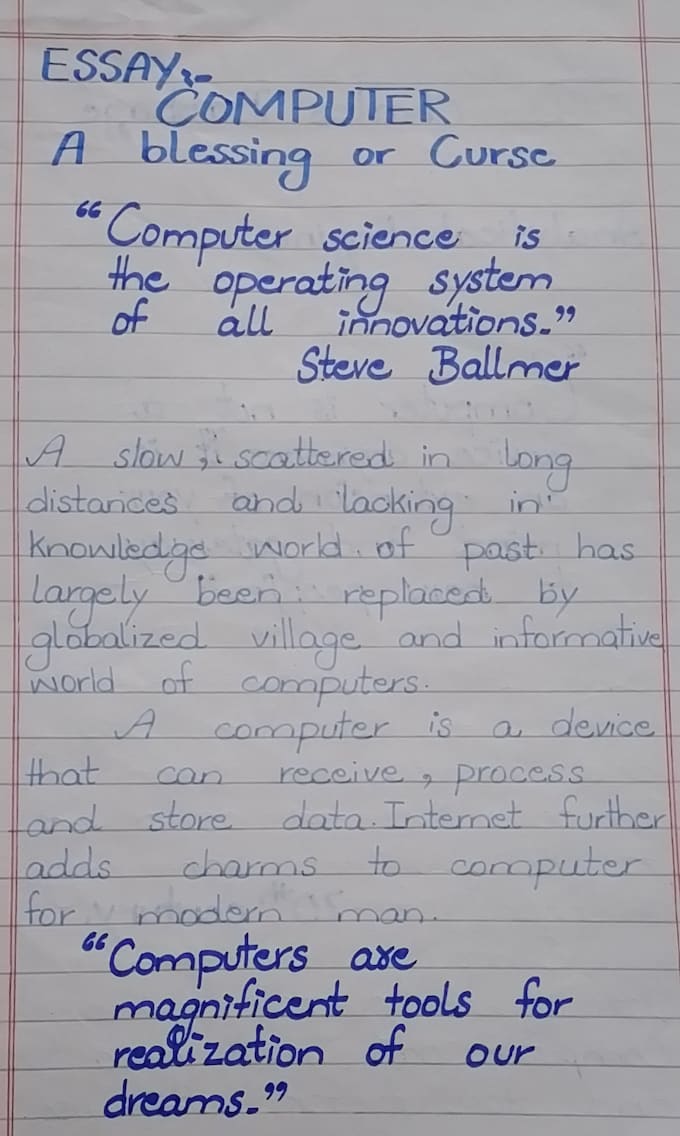 ESSAY:-
COMPUTER
A blessing or Curse
“Computer science is
the operating system
of all innovations.”
Steve Ballmer
A slow, scattered in long
distances and lacking in
knowledge world of past has
largely been replaced by
globalized village and informative
world of computers.
A computer is a device
that can receive, process
and store data. Internet further
adds charms to computer
for modern man.
“Computers are
magnificent tools for
realization of our
dreams.”